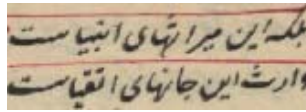 بلکه این میراثهای انبیاست
وارث این جانهای اتقیاست